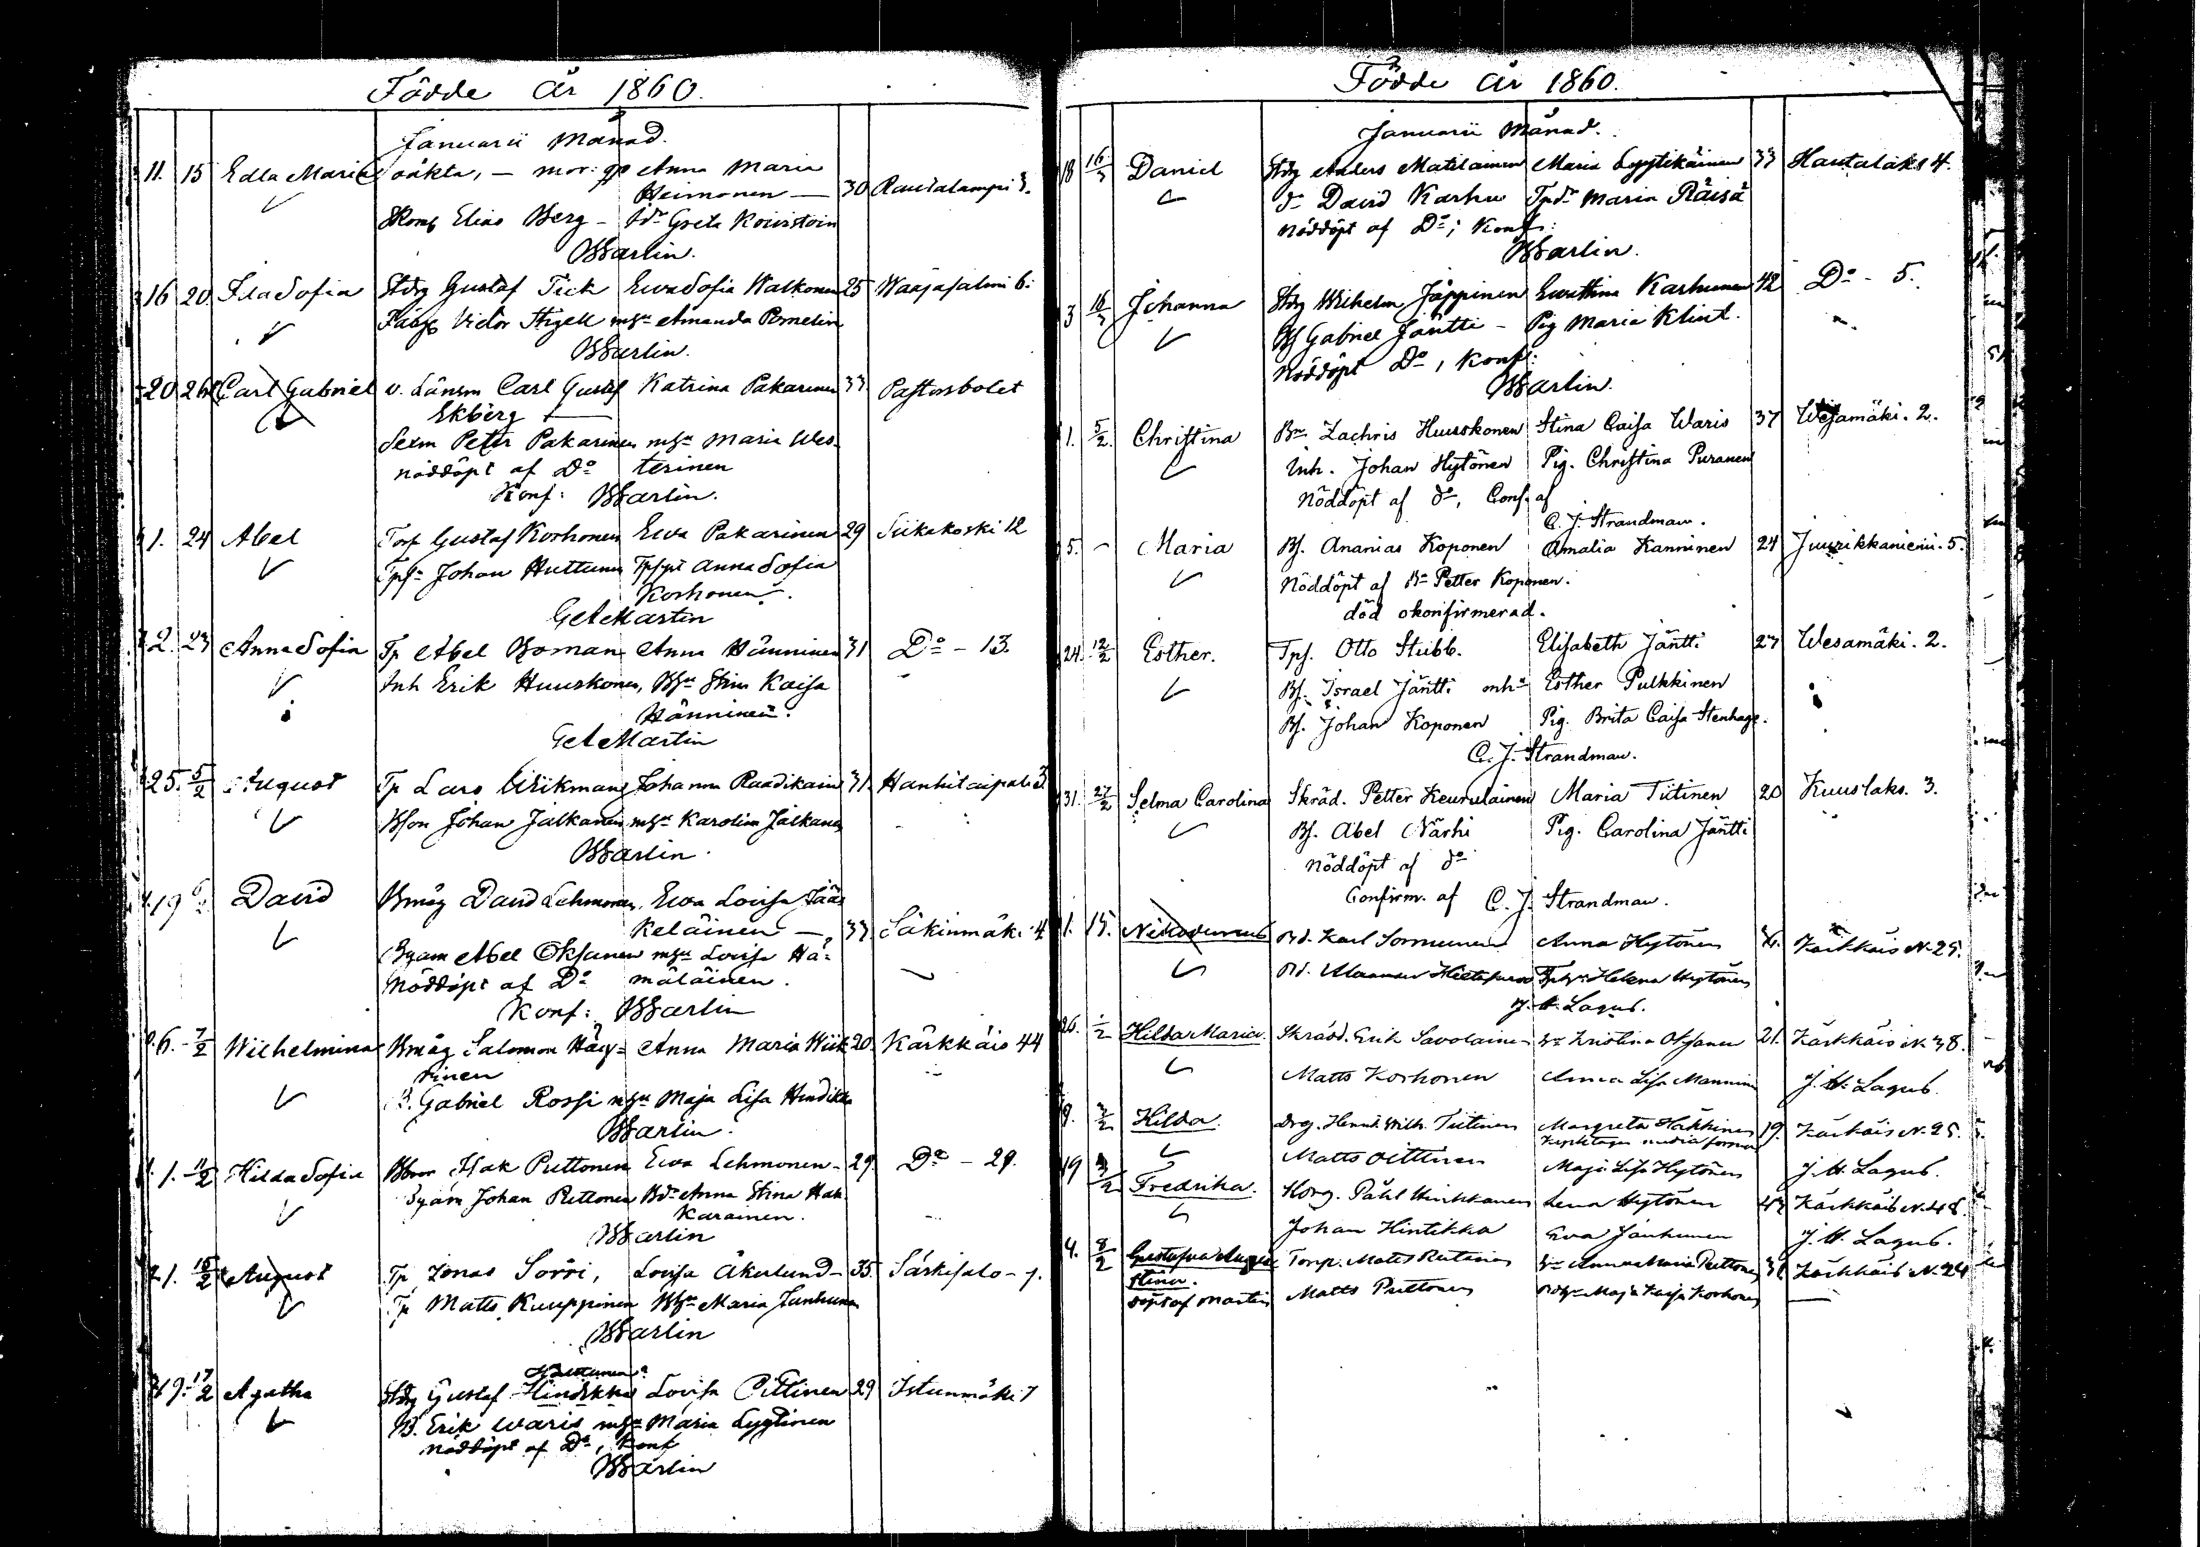 Födde År 1860.
Januarii Månad.
11. 15 Edla Maria oäkta, – mor: Anna Maria
Heimonen – 30 Rautalampi 3.
Elias Berg – Greta Koivistoin
BWarlin.
16 20 Ida Sofia Stdg Gustaf Tick Ewa Sofia Walkonen 25 Waajasalmi 6.
Victor Stigell Amanda Pomelin
BWarlin.
20 26 Carl Gabriel v. Länsm Carl Gustaf Katrina Pakarinen 33 Pastorsbolet
Ekberg
Sexm Peter Pakarinen Maria Wes-
nöddöpt af Do terinen
Konf: BWarlin.
1. 24 Abel Torp Gustaf Korhonen Ewa Pakarinen 29 Siikakoski 12
Johan Huttunen Anna Sofia
Korhonen.
G A Martin
2. 23 Anna Sofia Tp Abel Boman Anna Hänninen 31 Do – 13.
Inh Erik Huuskonen, Stina Kaisa
Hänninen.
G A Martin
25. 5/2 August Tp Lars Wikman Johanna Raadikain 31. Hanhitaipale 3
Johan Jalkanen Karolina Jalkanen
BWarlin.
19 6/2 David Bmåg David Lehmonen, Ewa Lovisa Jää-
keläinen – 33 Säkinmäki 4
Abel Oksanen Lovisa Hä-
Nöddöpt af Do mäläinen.
Konf: BWarlin
6. 7/2 Wilhelmina Bmåg Salomon Häy- Anna Maria Wiik 20. Kärkkäis 44
rinen
B. Gabriel Rossi Maja Lisa Hindikka
BWarlin.
1. 11/2 Hilda Sofia Isak Puttonen Ewa Lehmonen – 29. Do – 29.
Johan Puttonen Anna Stina Hak-
karainen.
BWarlin
1. 15/2 August Tp Jonas Sorri, Lovisa Åkerlund – 35. Särkisalo – 7.
Tp Matts Kuuppinen Maria Janhunen
BWarlin
19. 17/2 Agatha Stdg Gustaf Hindikka Lovisa Pittinen 29 Istunmäki 7
B. Erik Waris Maria Lyytinen
Nöddöpt af Do, Konf
BWarlin
Födde År 1860.
Januarii Månad.
18 16/3 Daniel Stdg Anders Matilainen Maria Lyytikäinen 33 Hautolaks 4.
do David Karhu Maria Räisä
nöddöpt af Do; Konf:
BWarlin.
3 16/3 Johanna Stdg Wilhelm Jäppinen Karhunen 42 Do – 5.
Gabriel Jäntti – Pig Maria Klint.
Nöddöpt Do, Konf:
BWarlin.
1. 5/2. Christina Bn. Zachris Huuskonen Stina Caisa Waris 37 Wesamäki. 2.
Inh. Johan Hytönen Pig. Christina Puranen
Nöddöpt af do, Conf. af
C. J. Strandman.
5. – Maria Bs. Ananias Koponen Amalia Kanninen 24 Juurikkaniemi. 5.
Nöddöpt af Petter Koponen.
död okonfirmerad.
24. 12/2 Esther. Tps. Otto Stubb. Elisabeth Jäntti 27 Wesamäki. 2.
Bs. Israel Jäntti Esther Pulkkinen
Bs. Johan Koponen Pig. Brita Caisa Stenhage.
C. J. Strandman.
31. 27/2 Selma Carolina Skräd. Petter Keurulainen Maria Tiitinen 20 Kuuslaks. 3.
Bs. Abel Närhi Pig. Carolina Jäntti
Nöddöpt af do
Confirm. af C. J. Strandman.
1. 15. Nikodemus Karl Sormunen Anna Hytönen Kärkkäis N. 25.
Helena Hytönen
J. H. Lagus.
26. Hilda Maria Skrädd. Erik Savolainen Kristina Oksanen 21. Kärkkäis N. 38.
Matts Korhonen Anna Lisa Manninen J. H. Lagus.
8. 2/2 Hilda. Drg. Henrik Wilh. Tiitinen Margreta Häkkinen 19. Kärkäis N. 25.
Matts Oittinen Maja Lisa Hytönen J. H. Lagus.
19 3/2 Fredrika. Påhl Hinkkanen Lena Hytönen 43 Kärkkäis N. 48.
Johan Hintikka Eva Janhunen J. H. Lagus.
4. 8/2 Gustafva
Stina. Torp. Matts Rutanen Anna Maria Puttonen Kärkkäis N. 24
döpt af Martin Matts Puttonen Maja Kaisa Korhonen